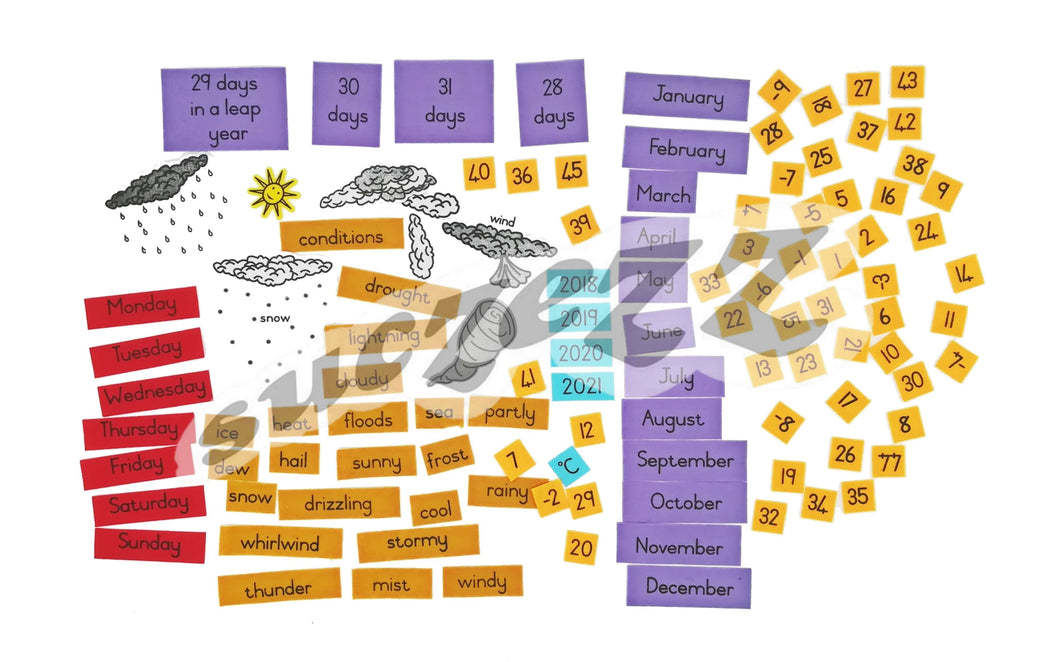 29 days
in a leap
year
30
days
31
days
28
days
January
February
March
April
May
June
July
August
September
October
November
December
40
36
45
39
conditions
wind
snow
drought
lightning
cloudy
2018
2019
2020
2021
41
Monday
Tuesday
Wednesday
Thursday
Friday
Saturday
Sunday
ice
heat
floods
sea
partly
dew
hail
sunny
frost
snow
drizzling
cool
rainy
whirlwind
stormy
thunder
mist
windy
12
7
°C
-2
29
20
-9
18
27
43
28
37
42
25
38
-7
5
16
9
-5
2
24
3
-1
1
33
-6
3
14
22
15
31
6
11
21
13
23
10
30
17
-8
8
26
44
19
32
34
35
sucrezz